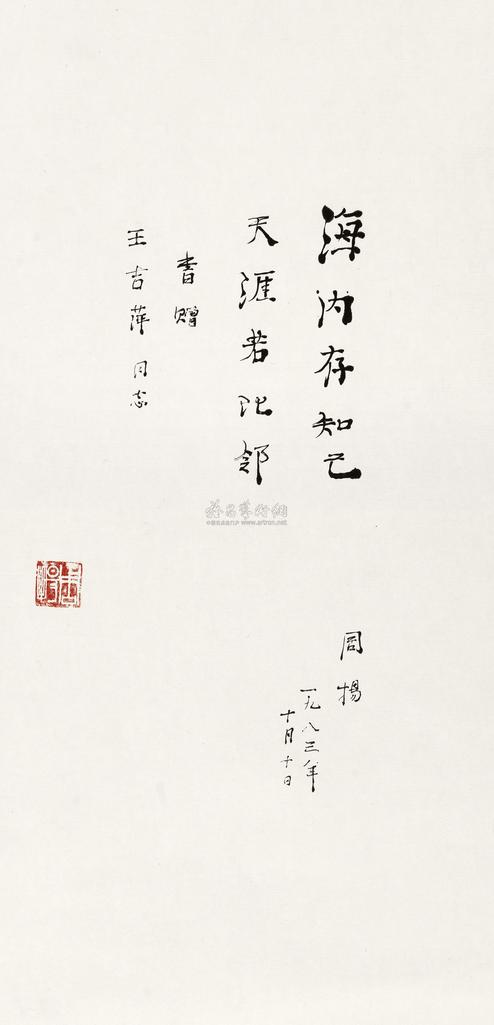 海内存知己
天涯若比邻
书赠
王吉萍同志
周扬
一九八三年
十月十日
www.artron.net